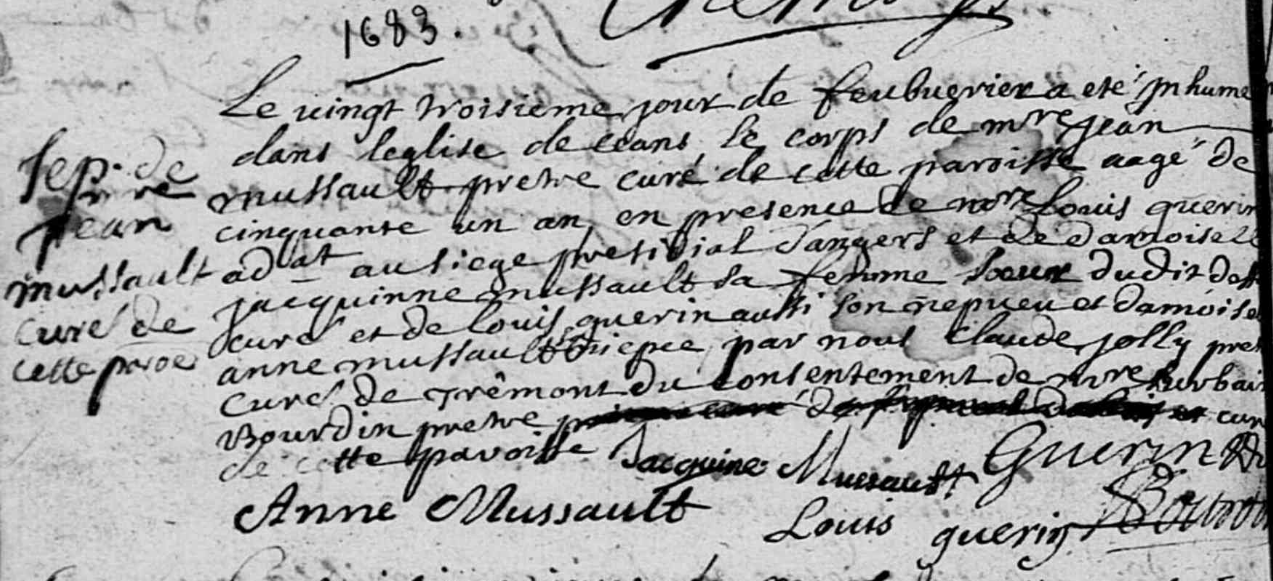 1683.
Le vingt troisieme jour de feubvrier a eté inhume
dans leglise de ceans le corps de mre jean
mussault pretre curé de cette paroisse aagé de
cinquante un an en presence de mre Louis guerin
adat au siege presidial dangers et de damoiselle
jacquinne mussault sa femme soeur dudit deft
curé et de Louis guerin aussi son nepveu et damoise
anne mussault niepce par nous Claude jolly pret
curé de Trêmont du consentement de mre urbain
Bourdin pretre et cure
de cette paroisse
Sep. de
mre
jean
mussault
curé de
cette paroe
Jacquine Mussault
Guerin
Anne Mussault
Louis guerin
Bourdin